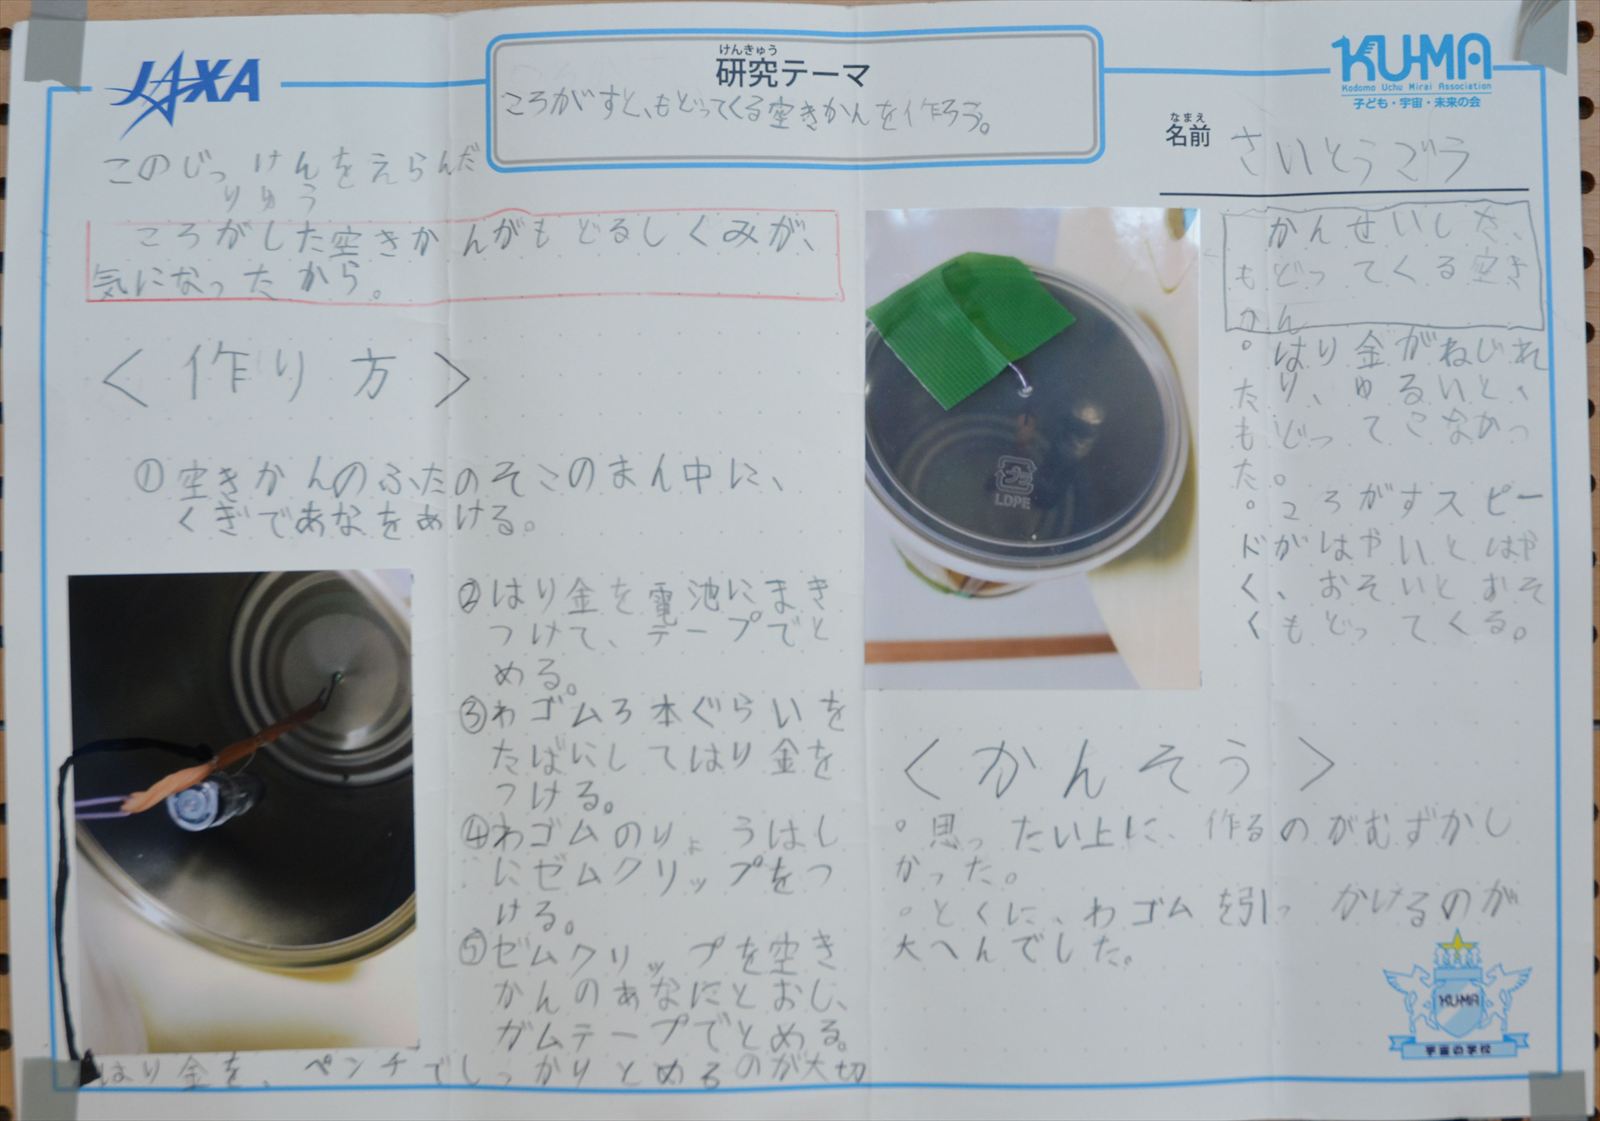 JAXA
けんきゅう
研究テーマ
ころがすと、もどってくる空きかんを作ろう。
KU-MA
Kodomo Uchu Mirai Association
子ども・宇宙・未来の会
なまえ
名前
さいとうごう
このじっけんをえらんだ
りゆう
ころがした空きかんがもどるしくみが、
気になったから。
<作り方>
①空きかんのふたのそこのまん中に、
くぎであなをあける。
②はり金を電池にまき
つけて、テープでと
める。
③わゴム3本ぐらいを
たばにしてはり金を
つける。
④わゴムのりょうはし
にゼムクリップをつ
ける。
⑤ゼムクリップを空き
かんのあなにとおし、
ガムテープでとめる。
はり金を、ペンチでしっかりとめるのが大切
LDPE
かんせいした、
もどってくる空き
かん
。はり金がねじれ
たり、ゆるいと、
もどってこなかっ
た。
。ころがすスピー
ドがはやいとはや
く、おそいとおそ
くもどってくる。
<かんそう>
。思ったい上に、作るのがむずかし
かった。
。とくに、わゴムを引っかけるのが
大へんでした。
KUMA
宇宙の学校